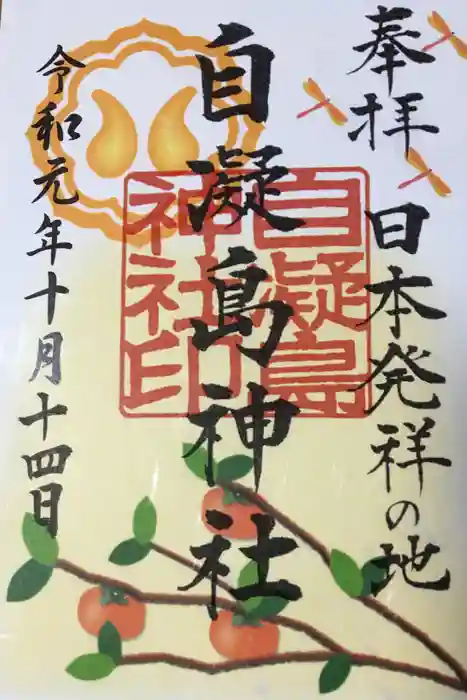 奉拝
日本発祥の地
自凝島神社
自凝島
神社印
令和元年十月十四日